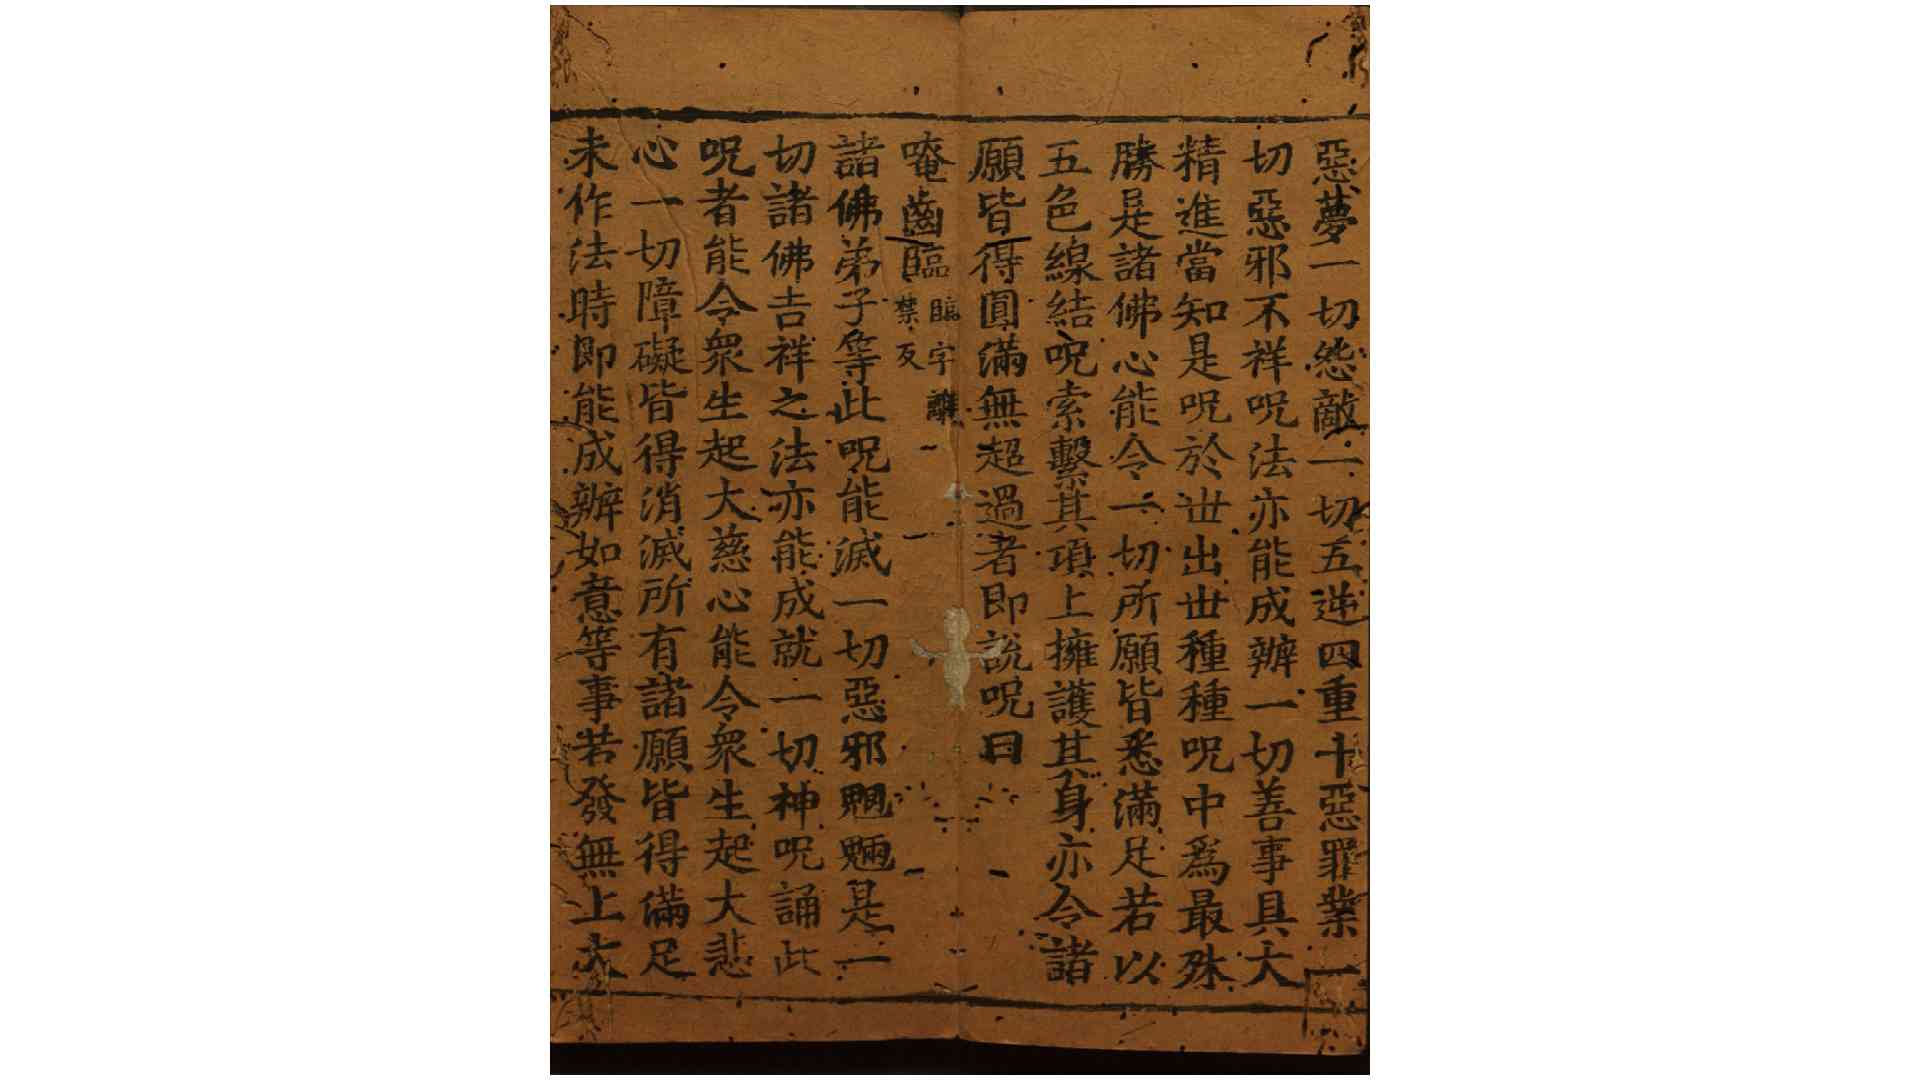 惡夢一切怨敵一切五逆四重十惡罪業一
切惡邪不祥呪法亦能成辦一切善事具大
精進當知是呪於世出世種種呪中爲最殊
勝是諸佛心能令一切所願皆悉滿足若以
五色線結呪索繫其項上擁護其身亦令諸
願皆得圓滿無超過者即說呪曰
唵齒臨臨字
禁反
諸佛弟子等此呪能滅一切惡邪魍魎是一
切諸佛吉祥之法亦能成就一切神呪誦此
呪者能令衆生起大慈心能令衆生起大悲
心一切障礙皆得消滅所有諸願皆得滿足
未作法時即能成辦如意等事若發無上大